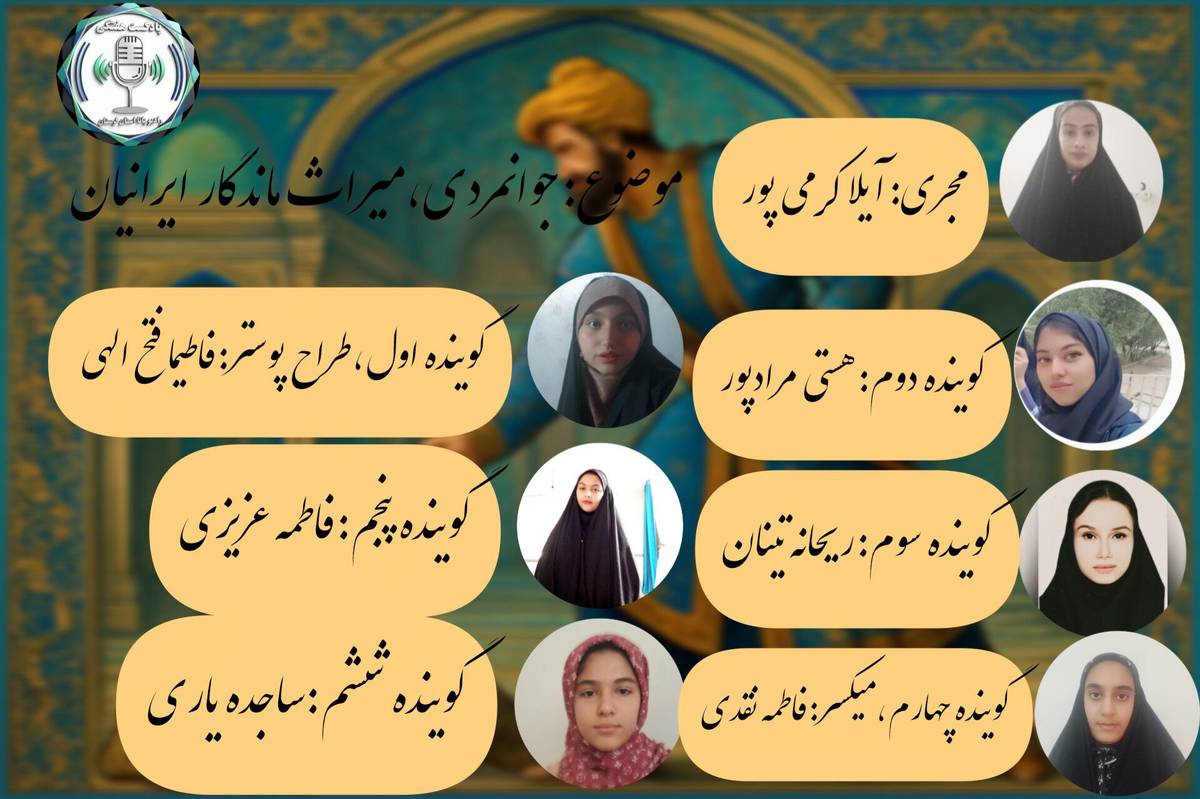 پادکست
موضوع: جوانمردی، میراث ماندگار ایرانیان
مجری: آیلا کرمی پور
گوینده اول، طراح پوستر: فاطیما فتح الهی
گوینده دوم: هستی مرادپور
گوینده سوم: ریحانه تینان
گوینده چهارم، میکسر: فاطمه نقدی
گوینده پنجم: فاطمه عزیزی
گوینده ششم: ساجده یاری